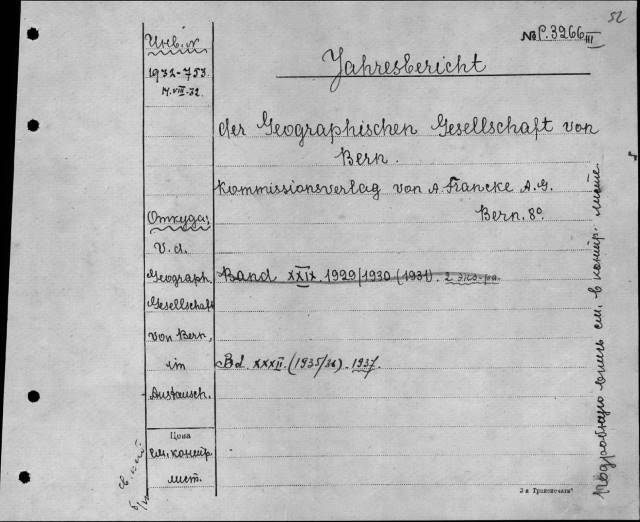 52
№ P.3266 III
Инв. к.
1932-753
14.VIII-32.
Jahresbericht
der Geographischen Gesellschaft von
Bern.
Kommissionsverlag von A. Francke A.G.
Bern. 8º.
Откуда:
V. d.
Geograph.
Gesellschaft
von Bern,
im
Austausch.
Band XXIX. 1929/1930 (1931). 2 экз-ра.
Bd. XXXII. (1935/36). 1937.
Цена
см. контр.
лист.
Подробную опись см. в контр. листе.